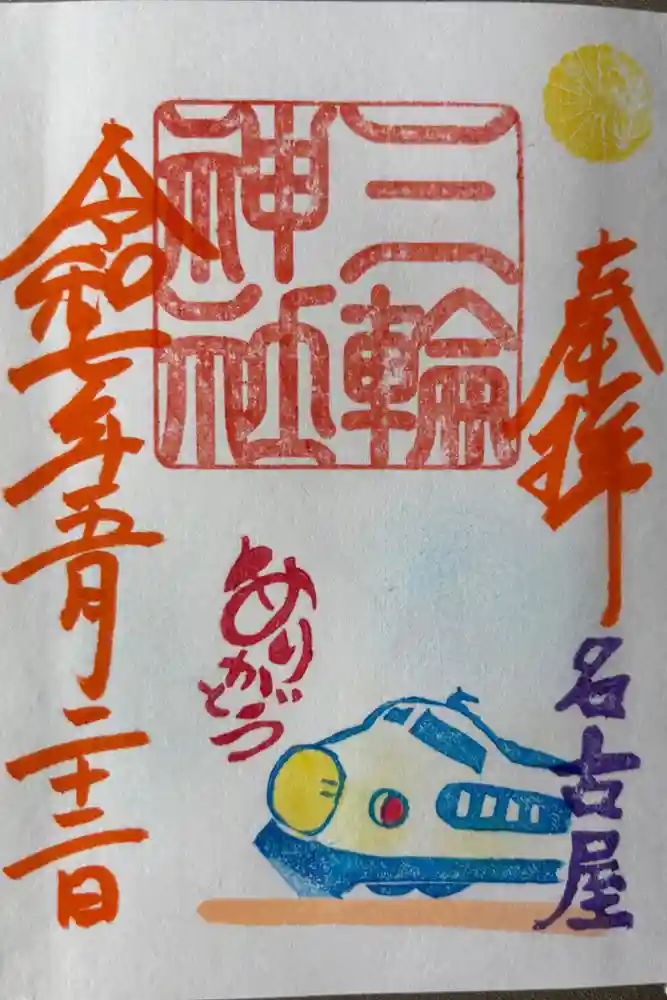 奉拝
名古屋
三輪
神社
ありがとう
令和七年五月二十二日